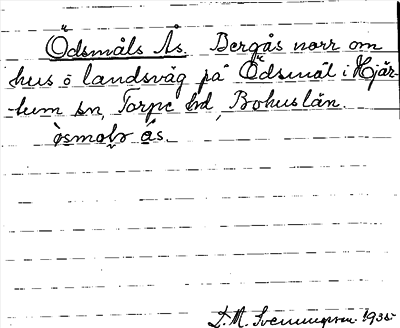 Ödsmåls Ås. Bergås norr om
hus o landsväg på Ödsmål i Hjär-
tum sn, Torpe hd, Bohuslän.
ås.
D. M. Svenningson 1935